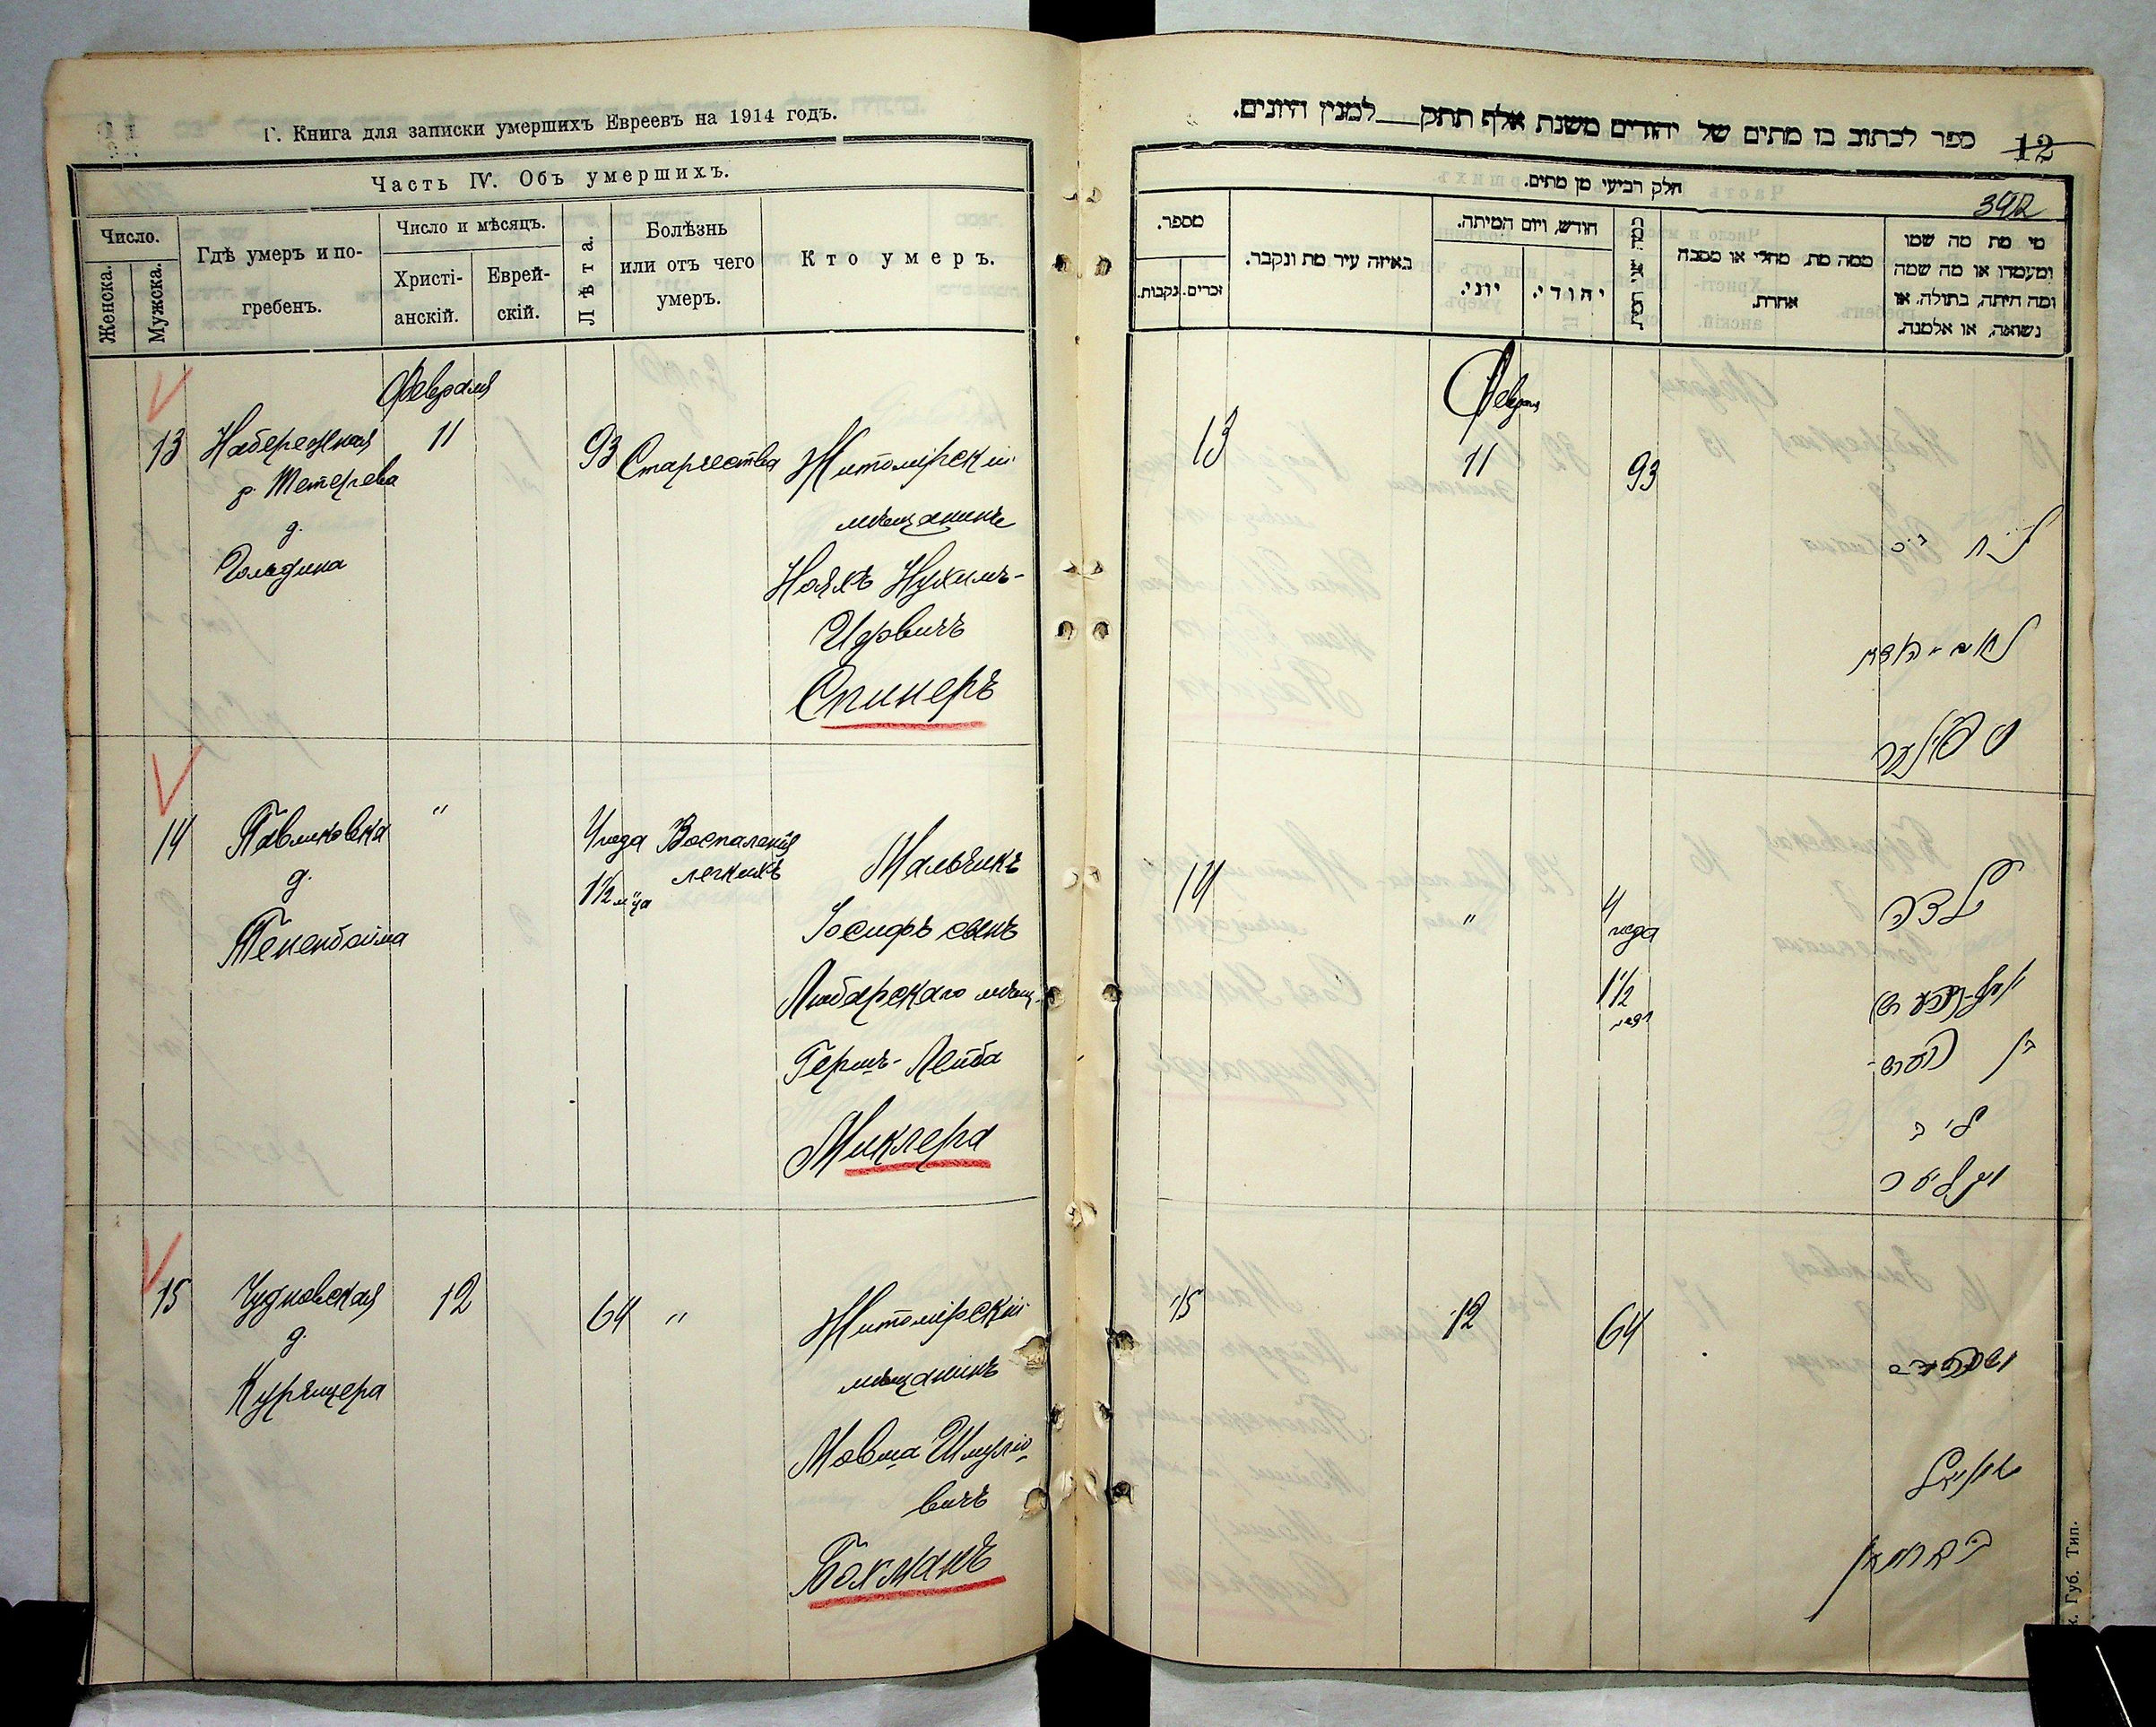 Г. Книга для записки умершихъ Евреевъ на 1914 годъ.
Часть IV. Объ умершихъ.
Число.
Женска.
Мужска.
Гдѣ умеръ и по-
гребенъ.
Число и мѣсяцъ.
Христі-
анскій.
Еврей-
скій.
Лѣта.
Болѣзнь
или отъ чего
умеръ.
Кто умеръ.
Февраля
13
Набережная
р. Тетерева
д.
Гольдина
11
93
Старчества
Житомірскій
мѣщанинъ
Нояхъ Нухимъ-
Спинеръ
14
Павликовка
д.
Тененбойма
"
4 года
1½ м-ца
Воспаленія
легкихъ
Мальчикъ
Іосифъ сынъ
Любарскаго мѣщ.
Гершъ-Лейба
Миклера
15
Чудновская
д.
12
64
"
Житомірскій
мѣщанинъ
Мовша Шмуліо-
вичъ
Бохманъ
12
392
ספר לכתוב בו מתים של יהודים משנת אלף תתק למנין היונים.
חלק רביעי מן מתים.
מספר.
נקבות.
זכרים.
באיזה עיר מת ונקבר.
חודש, ויום המיתה.
יוני.
יהודי.
ממה מת, מחלי או מסבה
אחרת.
מי מת מה שמו
ומעמדו או מה שמה
ומה היתה, בתולה, או
נשואה, או אלמנה.
Февраля
13
11
93
14
"
4
года
1½
ילד
בן הירש-
ליב
מיקלער
15
12
64
בוכמאן
Губ. Тип.